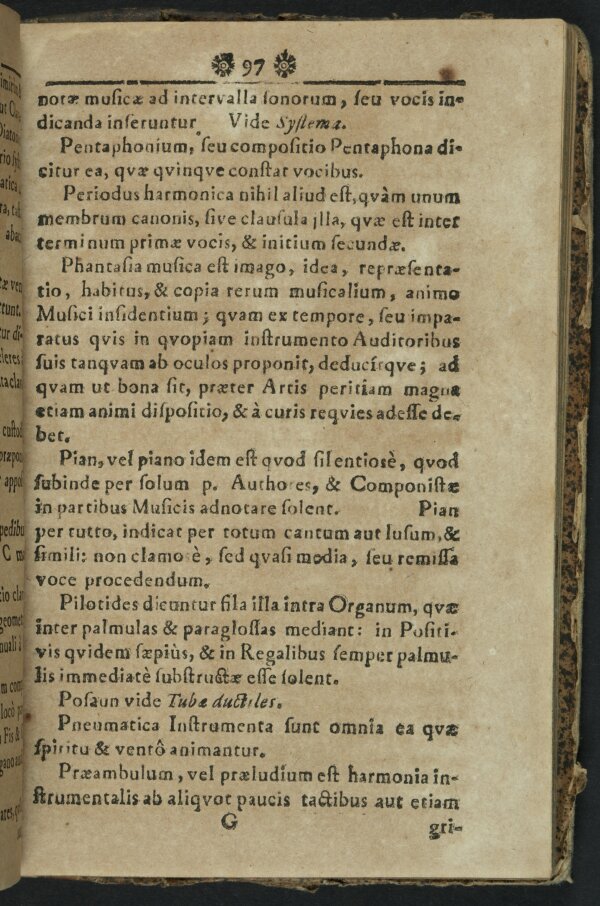 97
notæ musicæ ad intervalla sonorum, seu vocis in-
dicanda inseruntur Vide Systema.
Pentaphonium, seu compositio Pentaphona di-
citur ea, quæ qvinqve constat vocibus.
Periodus harmonica nihil aliud est, qvàm unum
membrum canonis, sive clausula illa, qvæ est inter
terminum primæ vocis, & initium secundæ.
Phantasia musica est imago, idea, repræsenta-
tio, habitus, & copia rerum musicalium, animo
Musici insidentium; qvam ex tempore, seu impa-
ratus qvis in qvopiam instrumento Auditoribus
suis tanqvam ab oculos proponit, deducitqve; ad
qvam ut bona sit, præter Artis peritiam magna
etiam animi dispositio, & à curis reqvies adesse de-
bet.
Pian, vel piano idem est qvod silentiosè, qvod
subinde per solum p. Authores, & Componistæ
in partibus Musicis adnotare solent. Pian
per tutto, indicat per totum cantum aut lusum, &
simili: non clamosè, sed qvasi modia, seu remissa
voce procedendum.
Pilotides dicuntur fila illa intra Organum, qvæ
inter palmulas & paraglossas mediant: in Positi-
vis qvidem sæpiùs, & in Regalibus semper palmu-
lis immediatè substructæ esse solent.
Posaun vide Tubæ ductiles.
Pneumatica Instrumenta sunt omnia ea qvæ
spiritu & ventô animantur.
Præambulum, vel præludium est harmonia in-
strumentalis ab aliqvot paucis tactibus aut etiam
G gri-